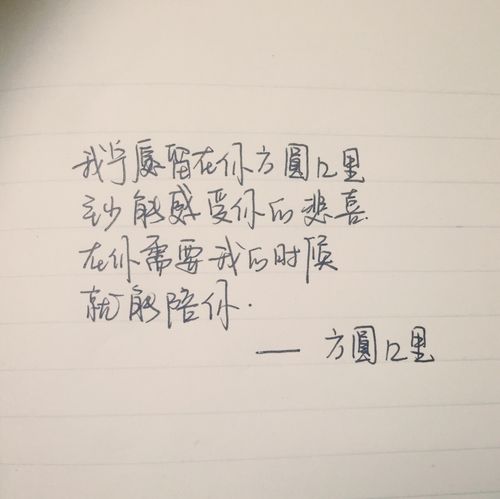 我宁愿留在你方圆几里
至少能感受你的悲喜
在你需要我的时候
就能陪你.
— 方圆几里